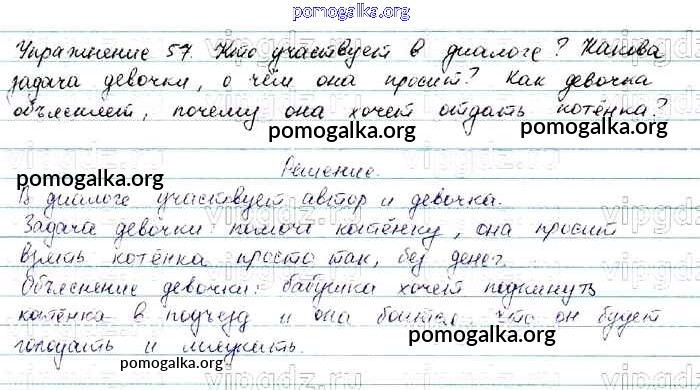 pomogalka.org
Упражнение 57. Кто участвует в диалоге? Какова
задача девочки, о чём она просит? Как девочка
объясняет, почему она хочет отдать котёнка?
pomogalka.org pomogalka.org
Решение.
pomogalka.org
В диалоге участвует автор и девочка.
Задача девочки помочь котёнку, она просит
взять котёнка просто так, без денег.
Объяснение девочки: бабушка хочет подкинуть
котёнка в подъезд и она боится, что он будет
голодать и мяукать.
pomogalka.org pomogalka.org
vipgdz.ru vipgdz.ru vipgdz.ru